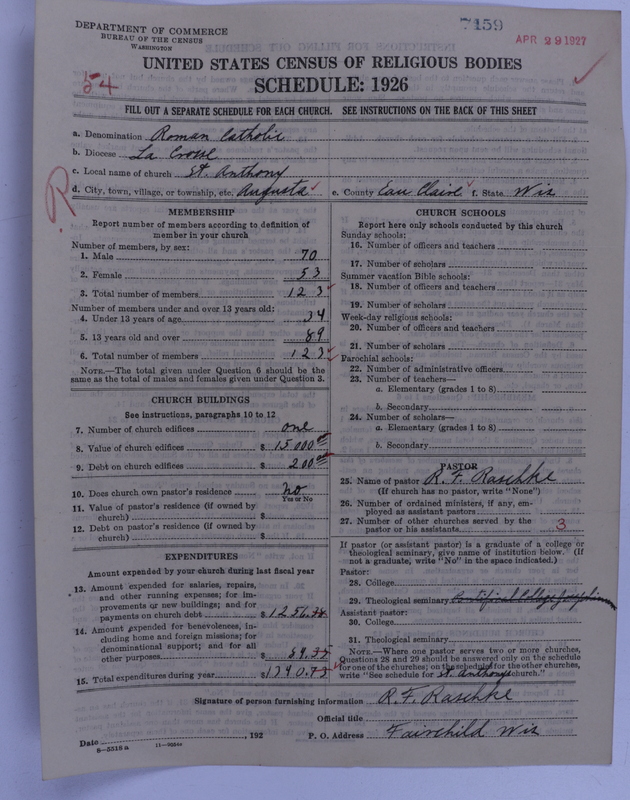 DEPARTMENT OF COMMERCE
BUREAU OF THE CENSUS
WASHINGTON
7159
APR 29 1927
54
UNITED STATES CENSUS OF RELIGIOUS BODIES
SCHEDULE: 1926
FILL OUT A SEPARATE SCHEDULE FOR EACH CHURCH. SEE INSTRUCTIONS ON THE BACK OF THIS SHEET
a. Denomination Roman Catholic
b. Diocese La Crosse
c. Local name of church St. Anthony
d. City, town, village, or township, etc. Augusta e. County Eau Claire f. State Wis
R
MEMBERSHIP
Report number of members according to definition of
member in your church
Number of members, by sex:
1. Male 70
2. Female 53
3. Total number of members 123
Number of members under and over 13 years old:
4. Under 13 years of age 34
5. 13 years old and over 89
6. Total number of members 123
NOTE.—The total given under Question 6 should be the
same as the total of males and females given under Question 3.
CHURCH BUILDINGS
See instructions, paragraphs 10 to 12
7. Number of church edifices one
8. Value of church edifices $ 15000
9. Debt on church edifices $ 200
10. Does church own pastor's residence no
Yes or No
11. Value of pastor's residence (if owned by
church) $
12. Debt on pastor's residence (if owned by
church) $
EXPENDITURES
Amount expended by your church during last fiscal year
13. Amount expended for salaries, repairs,
and other running expenses; for im-
provements or new buildings; and for
payments on church debt $ 1256
14. Amount expended for benevolences, in-
cluding home and foreign missions; for
denominational support; and for all
other purposes $
15. Total expenditures during year $ 1340.73
CHURCH SCHOOLS
Report here only schools conducted by this church
Sunday schools:
16. Number of officers and teachers
17. Number of scholars
Summer vacation Bible schools:
18. Number of officers and teachers
19. Number of scholars
Week-day religious schools:
20. Number of officers and teachers
21. Number of scholars
Parochial schools:
22. Number of administrative officers
23. Number of teachers—
a. Elementary (grades 1 to 8)
b. Secondary
24. Number of scholars—
a. Elementary (grades 1 to 8)
b. Secondary
PASTOR
25. Name of pastor R. F. Raschke
(If church has no pastor, write "None")
26. Number of ordained ministers, if any, em-
ployed as assistant pastors
27. Number of other churches served by the
pastor or his assistants 3
If pastor (or assistant pastor) is a graduate of a college or
theological seminary, give name of institution below. (If
not a graduate, write "No" in the space indicated.)
Pastor:
28. College
29. Theological seminary Pontifical College Josephinum
Assistant pastor:
30. College
31. Theological seminary
NOTE.—Where one pastor serves two or more churches,
Questions 28 and 29 should be answered only on the schedule
for one of the churches; on the schedule for the other churches,
write "See schedule for St. Anthony church."
Signature of person furnishing information R. F. Raschke
Official title
Date , 192 P. O. Address Fairchild Wis
8—5518 a